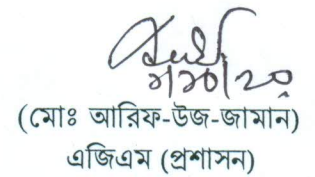 (মোঃ আরিফ-উজ-জামান)
এজিএম (প্রশাসন)